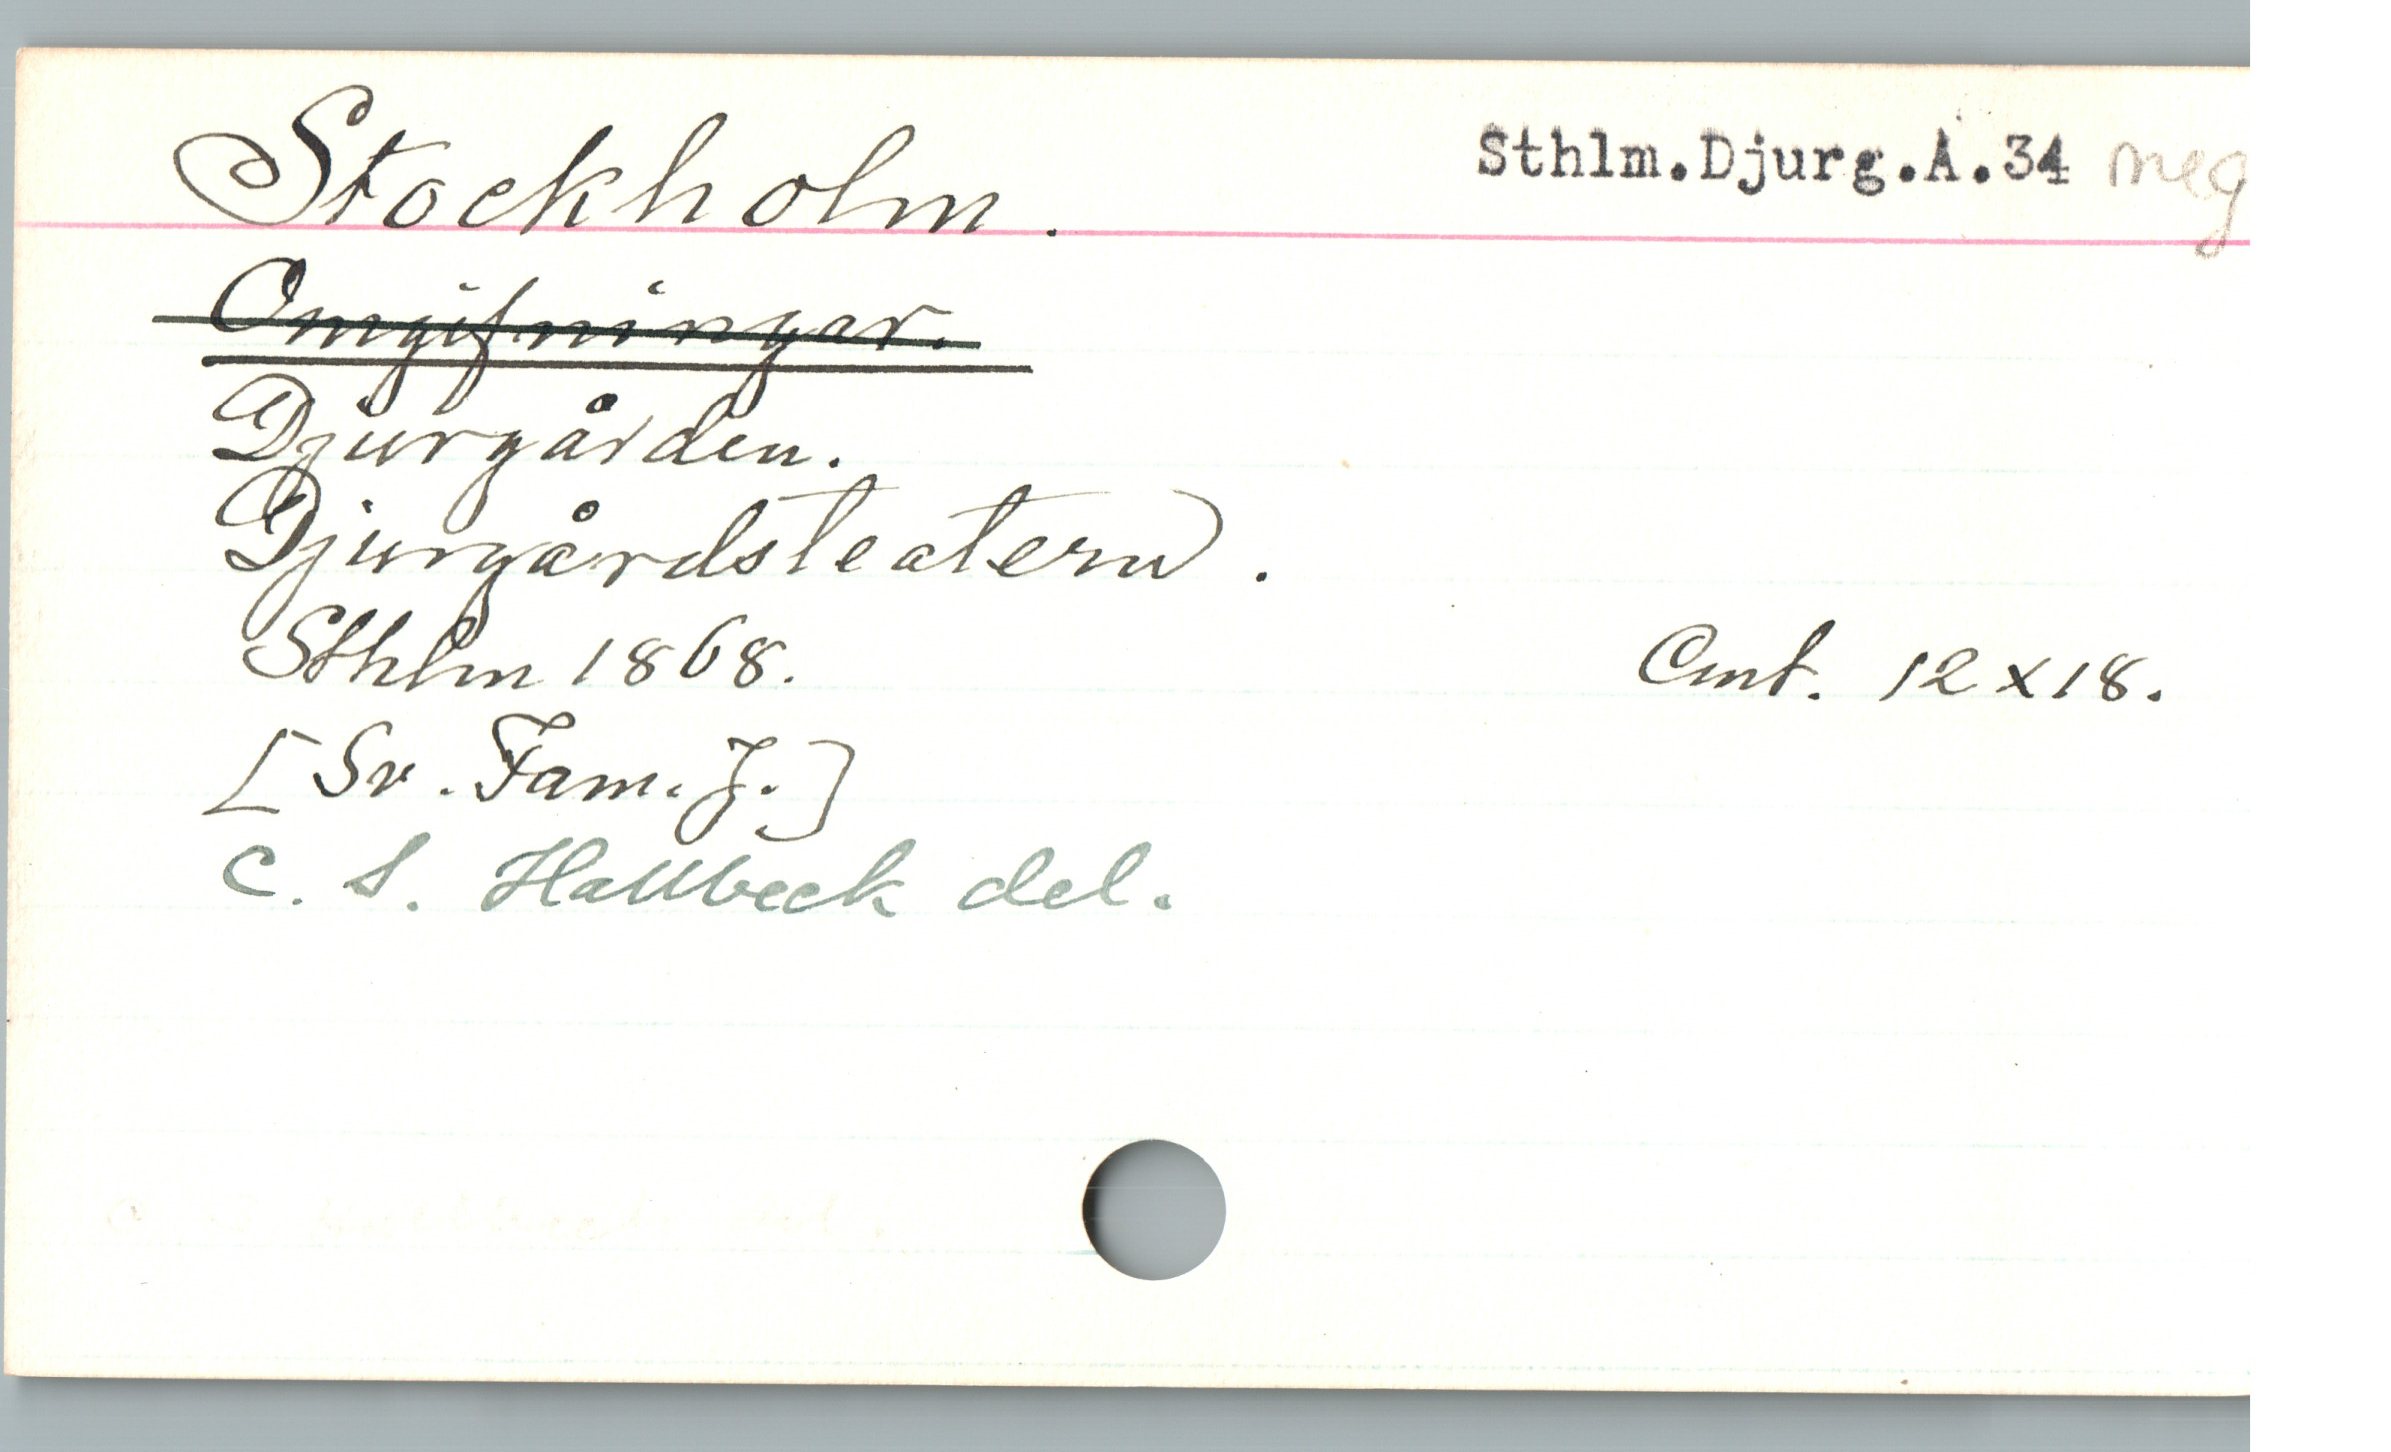 Stockholm. Sthlm.Djurg.A.34 neg
Omgifningar.
Djurgården.
Djurgårdsteatern.
Sthlm 1868. Cmt. 12 x 18.
[Sv. Fam. J.]
C. S. Hallbeck del.